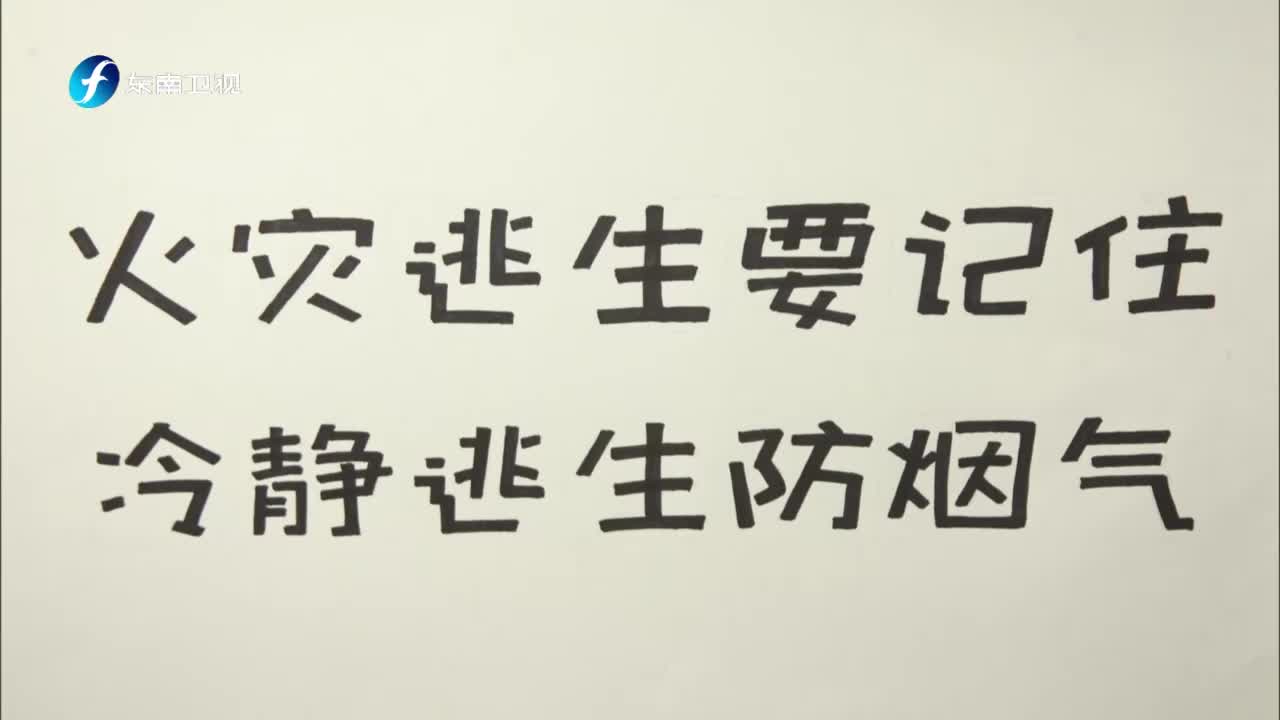 东南卫视
火灾逃生要记住
冷静逃生防烟气